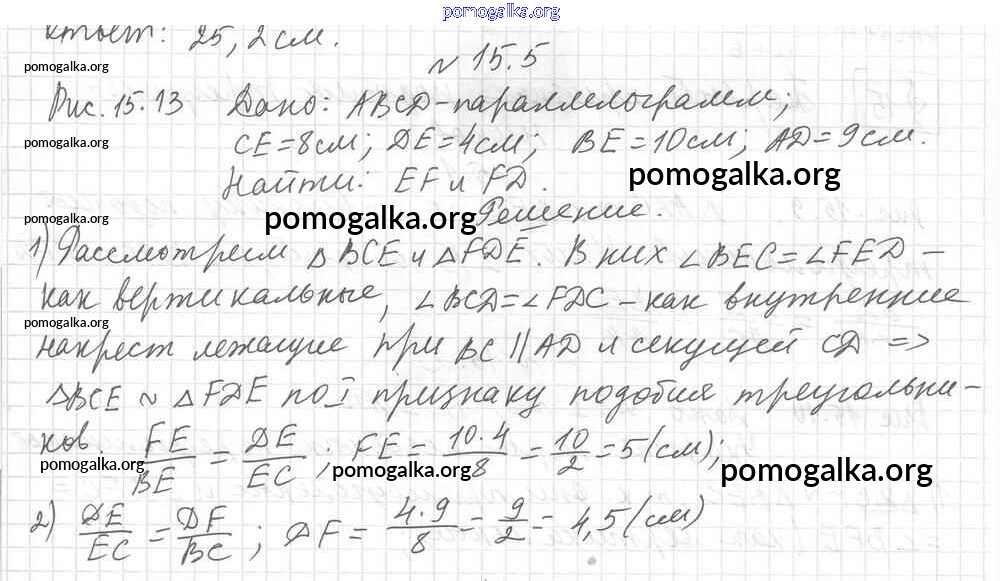 pomogalka.org
ответ: 25,2 см.
pomogalka.org
№ 15.5
Рис. 15.13 Дано: ABCD - параллелограмм;
pomogalka.org
CE=8см; DE=4см; BE=10см; AD=9см.
Найти: EF и FD. pomogalka.org
pomogalka.org Решение.
pomogalka.org
1) Рассмотрим △BCE и △FDE. В них ∠BEC=∠FED -
как вертикальные, ∠BCD=∠FDC - как внутренние
pomogalka.org
накрест лежащие при BC || AD и секущей CD =>
△BCE ~ △FDE по I признаку подобия треугольни-
ков. FE/BE = DE/EC; FE = 10·4/8 = 10/2 = 5 (см);
pomogalka.org pomogalka.org pomogalka.org
2) DE/EC = DF/BC; DF = 4·9/8 = 9/2 = 4,5 (см)
pomogalka.org